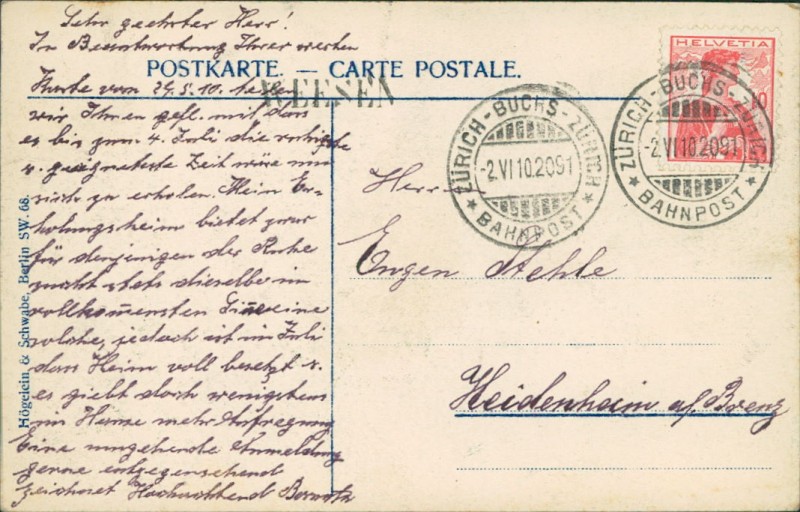 Sehr geehrter Herr!
In Beantwortung Ihrer werten
POSTKARTE. — CARTE POSTALE.
Karte vom 24.5.10. teile
WEESEN
wir Ihnen gefl. mit dass
es bis zum 4. Juli die ruhigste
u. geeignetste Zeit wäre um
sich zu erholen. Mein Er-
holungsheim bietet zwar
für denjenigen der Ruhe
sucht stets dieselbe im
vollkom̄ensten Sin̄e eine
solche, jedoch ist im Juli
das Heim voll besetzt u.
es giebt doch wenigstens
im Hause mehr Aufregung
Eine umgehende Anmeldung
gerne entgegensehend
zeichnet Hochachtend
Högelein & Schwabe, Berlin SW. 68.
HELVETIA
10
ZÜRICH-BUCHS-ZÜRICH
-2.VI.10.2091
BAHNPOST
ZÜRICH-BUCHS-ZÜRICH
-2.VI.10.2091
BAHNPOST
Herrn
Eugen Stehle
Heidenheim a/. Brenz